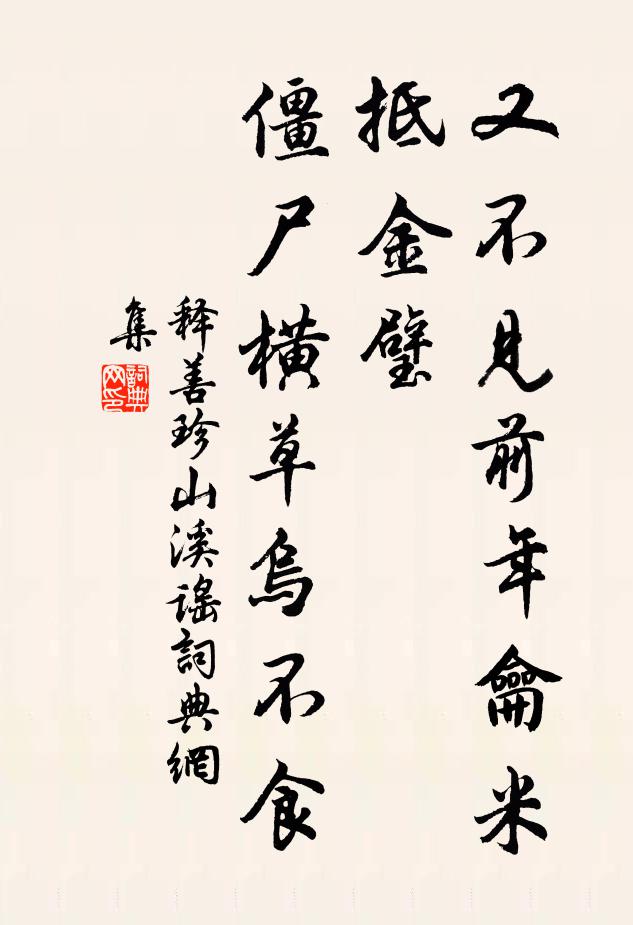 又不見前年龠米
抵金璧
僵尸橫草烏不食
释善珍山溪谣詞典網
集
詞典
网印